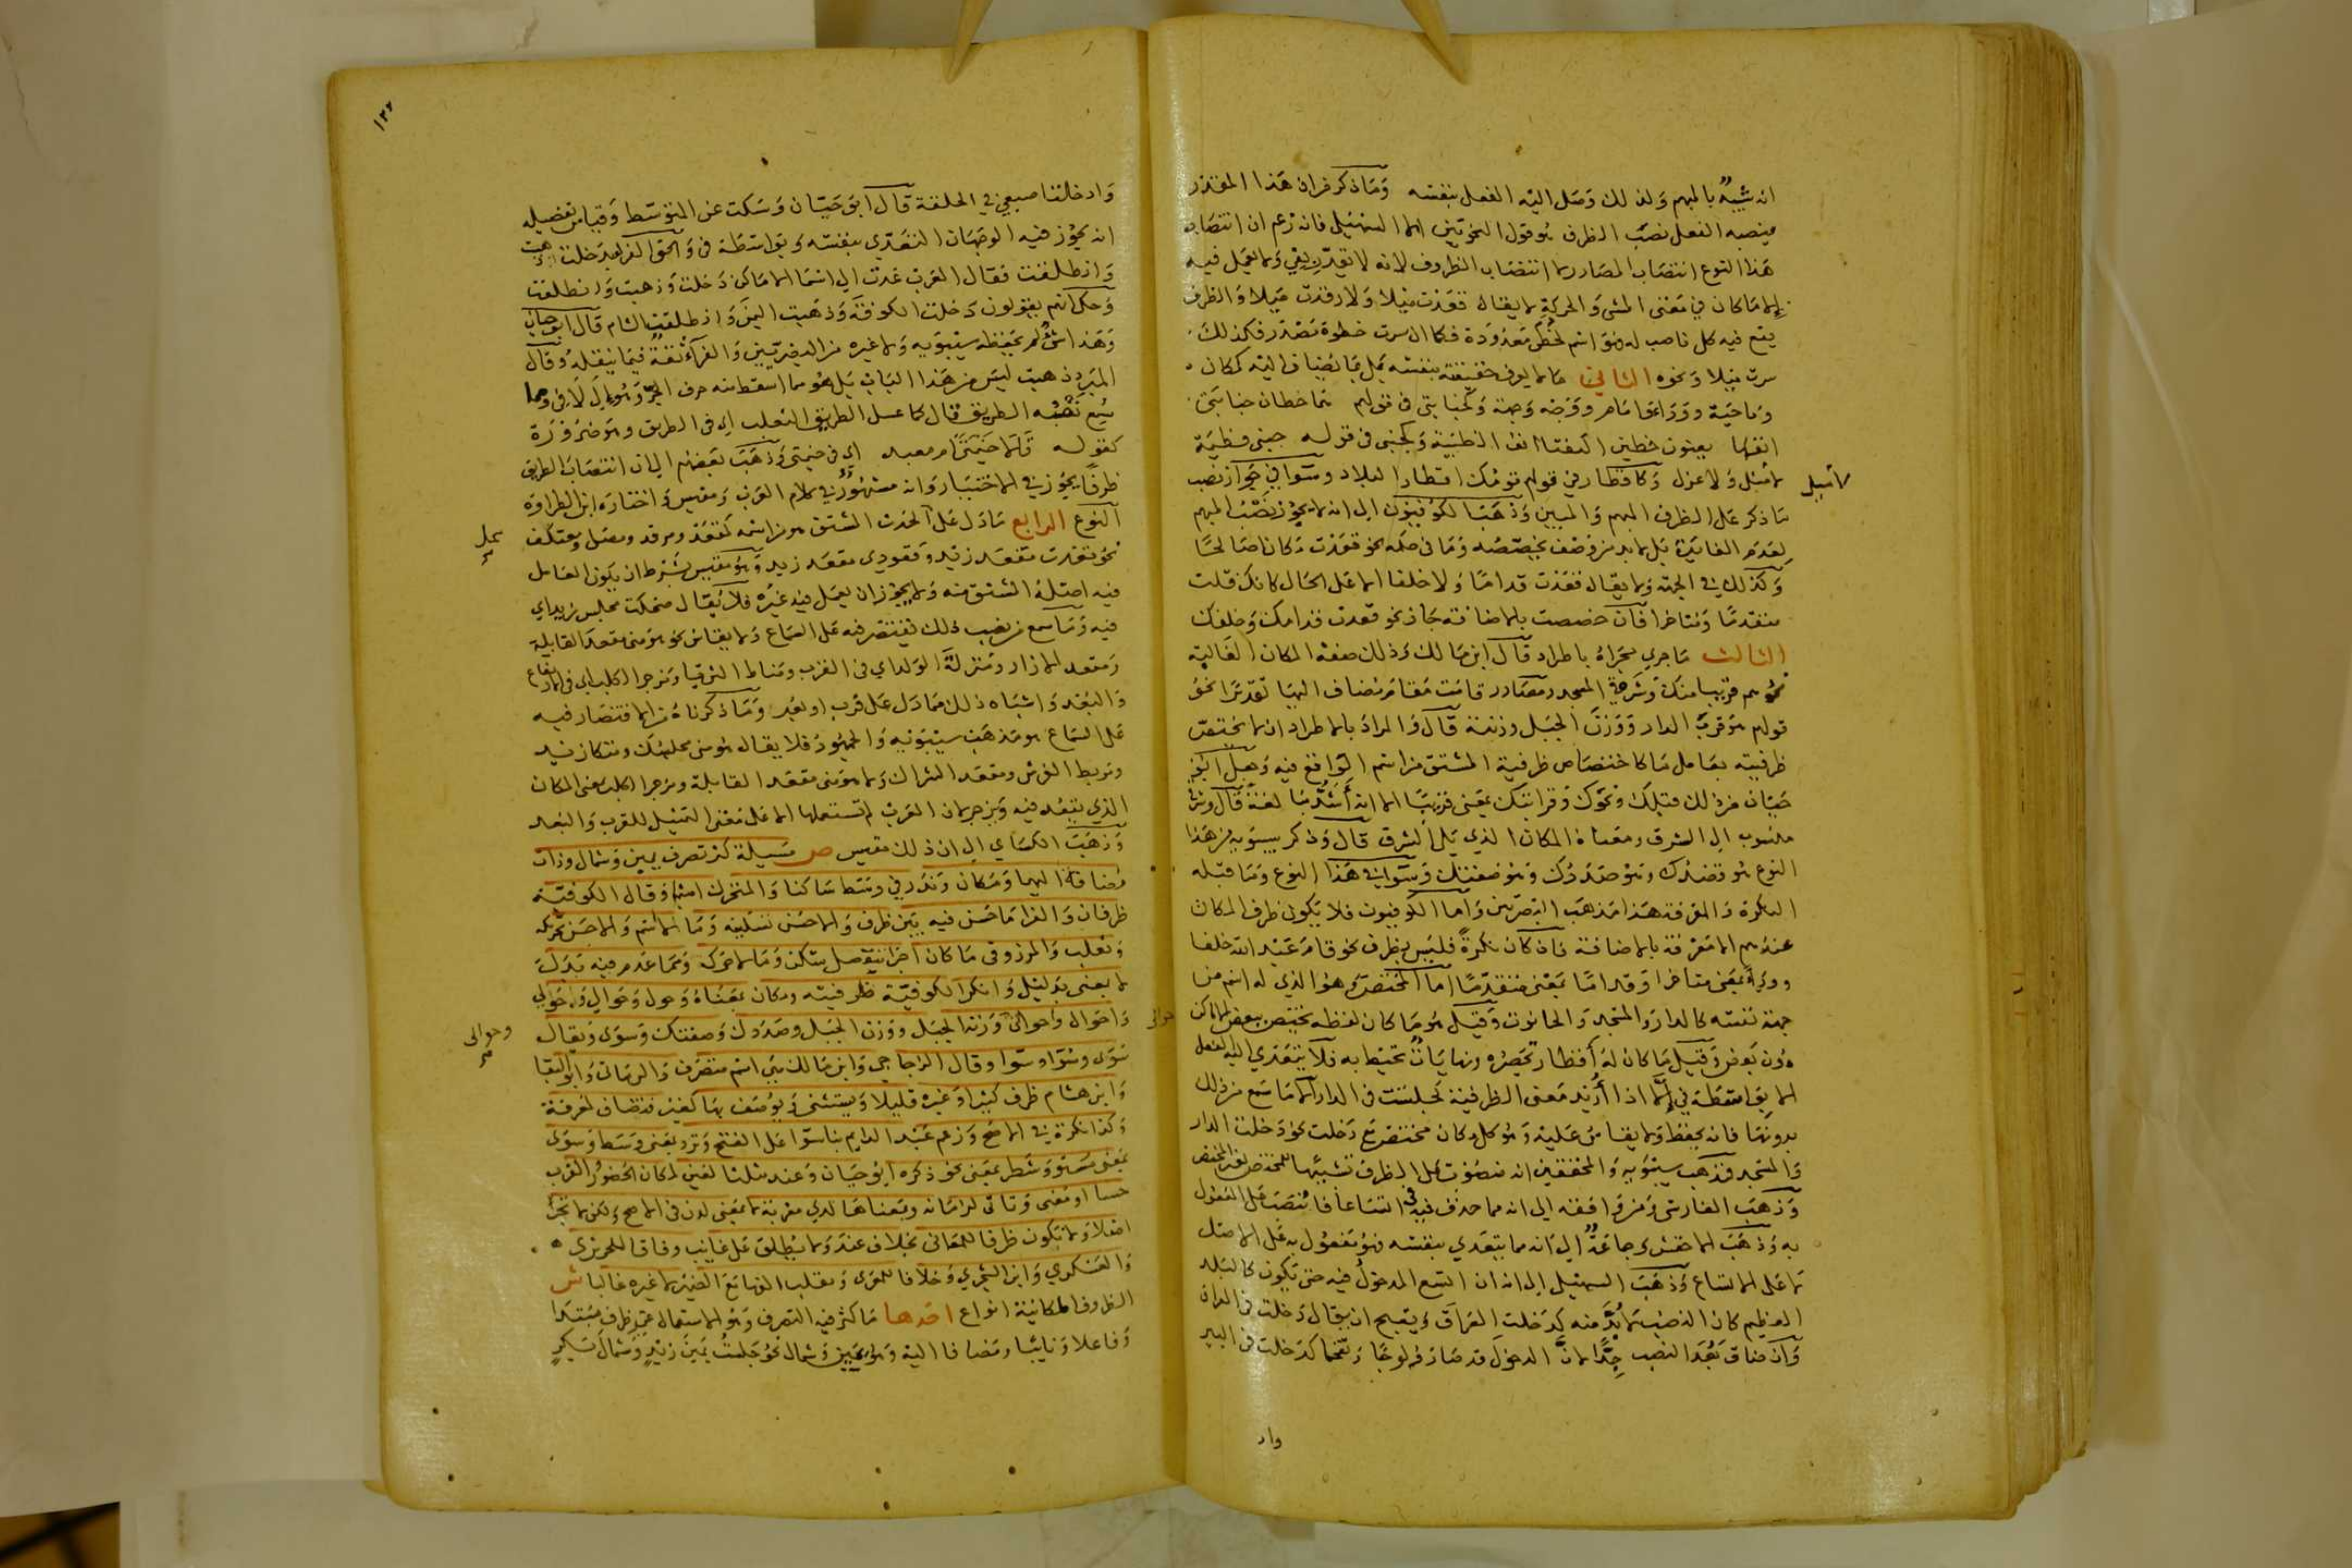 انه شبيه بالمبهم ولذلك وصل اليه الفعل بنفسه وما ذكر من ان هذا المقدر
ينصبه الفعل نصب الظرف هو قول النحويين الا السهيلي فانه زعم ان انتصاب
هذا النوع انتصاب المصادر لا انتصاب الظروف لانه لا يقدر بفي ولا يعمل فيه
الا ما كان في معنى المشي والحركة لا يقال قعدت ميلا ولا رقدت ميلا والظرف
يقع فيه كل ناصب له فهو اسم لخطى معدودة فكما ان سرت خطوة مصدر فكذلك
سرت ميلا ونحوه الثاني ما لا يعرف حقيقته بنفسه بل بما يضاف اليه كمكان
وناحية ووراء وامام ووجه وجهة وكجنابتي في قولهم هما خطان جنابتي
انفها يعنون خطين اكتنفا انف الظبية وكجنبي في قوله جنبي فطيمة
لا ميل ولا عزل وكاقطار في قولهم قومك اقطار البلاد وسوا في جواز نصب
ما ذكر على الظرف المبهم والمبين وذهب الكوفيون الى انه لا يجوز نصب المبهم
لعدم الفايدة بل لا بد من وصف يخصصه وما في حكمه نحو قعدت مكانا صالحا
وكذلك في الجهة ولا يقال قعدت قداما ولا خلفا الا على الحال كانك قلت
متقدما ومتاخرا فان خصصت بالاضافة جاز نحو قعدت قدامك وخلفك
الثالث ما جرى مجراه باطراد قال ابن مالك وذلك صفة المكان الغالبة
نحو هم قريبا منك وشرقي المسجد ومصادر قامت مقام مضاف اليها تقديرا نحو
قولهم هو قرب الدار ووزن الجبل وزنته قال والمراد بالاطراد ان لا تختص
ظرفيته بعامل ما كاختصاص ظرفية المشتق من اسم الواقع فيه وجعل ابو
حيان من ذلك قبلك ونحوك وقرابتك بمعنى قريبا الا انه اشد مبالغة قال وشرقي
منسوب الى الشرق ومعناه المكان الذي يلي الشرق قال وذكر سيبويه من هذا
النوع هو قصدك وهو صددك وهو صقبك وسوا في هذا النوع وما قبله
النكرة والمعرفة هذا مذهب البصريين واما الكوفيون فلا يكون ظرف المكان
عندهم الا معرفة بالاضافة فان كان نكرة فليس بظرف نحو قام عبد الله خلفا
ووراء بمعنى متاخرا وقداما بمعنى متقدما اما المختص وهو الذي له اسم من
جهة نفسه كالدار والمسجد والحانوت وقيل هو ما كان لفظه يختص ببعض الاماكن
دون بعض وقيل ما كان له اقطار تحصره ونهايات تحيط به فلا يتعدى اليه الفعل
الا بواسطة في الا اذا اريد معنى الظرفية كجلست في الدار الا ما سمع من ذلك
بدونها فانه يحفظ ولا يقاس عليه وهو كل مكان مختص مع دخلت نحو دخلت الدار
والمسجد فمذهب سيبويه والمحققين انه منصوب على الظرف تشبيها للمختص بغير المختص
وذهب الفارسي ومن وافقه الى انه مما حذف فيه في اتساعا فانتصب على المفعول
به وذهب الاخفش وجماعة الى انه مما يتعدى بنفسه فهو مفعول به على الاصل
لا على الاتساع وذهب السهيلي الى انه ان اتسع المدخول فيه حتى يكون كالبلد
العظيم كان النصب لا بد منه كدخلت العراق ويقبح ان يقال دخلت في العراق
وان ضاق بعد النصب جدا لان الدخول قد صار ولوجا وتقحما كدخلت في البير
لا ميل
وا ر
١٣٢
وادخلت اصبعي في الحلقة قال ابو حيان وسكت عن المتوسط وقياس تفصيله
انه يجوز فيه الوجهان التعدي بنفسه وبواسطة في والحق الفرا بدخلت ذهبت
وانطلقت فقال العرب عدت الى اسما الاماكن دخلت وذهبت وانطلقت
وحكى انهم يقولون دخلت الكوفة وذهبت اليمن وانطلقت الشام قال ابو حيان
وهذا شي لم يحفظه سيبويه ولا غيره من البصريين والفراء ثقة فيما ينقله وقال
المبرد ذهبت ليس من هذا الباب بل هو مما اسقط منه حرف الجر وهو الى لا في ومما
سمع نصبه الطريق قال كما عسل الطريق الثعلب اي في الطريق وهو ضرورة
كقوله قالا خيمتي ام معبد اي في خيمتي وذهب بعضهم الى ان انتصاب الطريق
ظرفا يجوز في الاختيار وانه مشهور في كلام العرب ومقيس واختاره ابن الطراوة
النوع الرابع ما دل على الحدث المشتق هو من اسمه كمقعد ومرقد ومصلى ومعتكف
نحو قعدت مقعد زيد وقعودي مقعد زيد وهو مقيس بشرط ان يكون العامل
فيه اصله المشتق منه ولا يجوز ان يعمل فيه غيره فلا يقال ضحكت مجلس زيد اي
فيه وما سمع من نصب ذلك يقتصر فيه على السماع ولا يقاس نحو هو مني مقعد القابلة
ومقعد الازار ومنزلة الولد اي في القرب ومناط الثريا ومزجر الكلب اي في الارتفاع
والبعد واشباه ذلك مما دل على قرب او بعد وما ذكرناه من الاقتصار فيه
على السماع هو مذهب سيبويه والجمهور فلا يقال هو مني مجلسك ومتكا زيد
ومربط الفرس ومقعد الشراك ولا هو مني مقعد القابلة ومزجر الكلب بمعنى المكان
الذي يقعد فيه ويزجر لان العرب لم تستعملها الا على معنى التمثيل للقرب والبعد
وذهب الكساي الى ان ذلك مقيس ص مسيلة كثر تصرف يمين وشمال وذات
مضافة اليهما ومكان وندر في وسط ساكنا والمتحرك اسم وقال الكوفية
ظرفان والفرا ما حسن فيه بين ظرف والاحسن تسكينه وما لا اسم والاحسن تحريكه
وثعلب والمرزوقي ما كان اجزا تنفصل سكن وما لا حرك ومما عدم فيه بدل
لا بمعنى بديل وانكر الكوفية ظرفيته ومكان بمعناه وحول وحوالي وحولي
واحوال واحوالي وزنة الجبل ووزن الجبل وصددك وصقبك وسوى ويقال
سوى وسوا وسوا وقال الزجاجي وابن مالك هي اسم متصرف والرماني وابو البقا
وابن هشام ظرف كثيرا وغيره قليلا ويستثنى ويوصف بها كغير فتضاف لمعرفة
وكذا نكرة في الاصح وزعم عبد الدايم بنا سوا على الفتح وترد بمعنى وسط وسوى
بمعنى مستو وشطر بمعنى نحو ذكره ابو حيان وعند مثلثا لعين لمكان الحضور والقرب
حسا او معنى وتاتي لزمانه وبمعناها لدى معربة لا بمعنى لدن في الاصح ولكن لا تجر
اصلا ولا تكون ظرفا للمعاني بخلاف عند ولا يطلق على غايب وفاقا للحريري
والعسكري وابن الشجري وخلافا للمعري ويقلب الفها مع الضمير لا غيره غالبا ش
الظروف المكانية انواع احدها ما كثر فيه التصرف وهو الاستعمال غير ظرف مبتدا
وفاعلا ونايبا ومضافا اليه وهو يمين وشمال نحو جلست يمين زيد وشمال بكر
وحوالى
حوالى